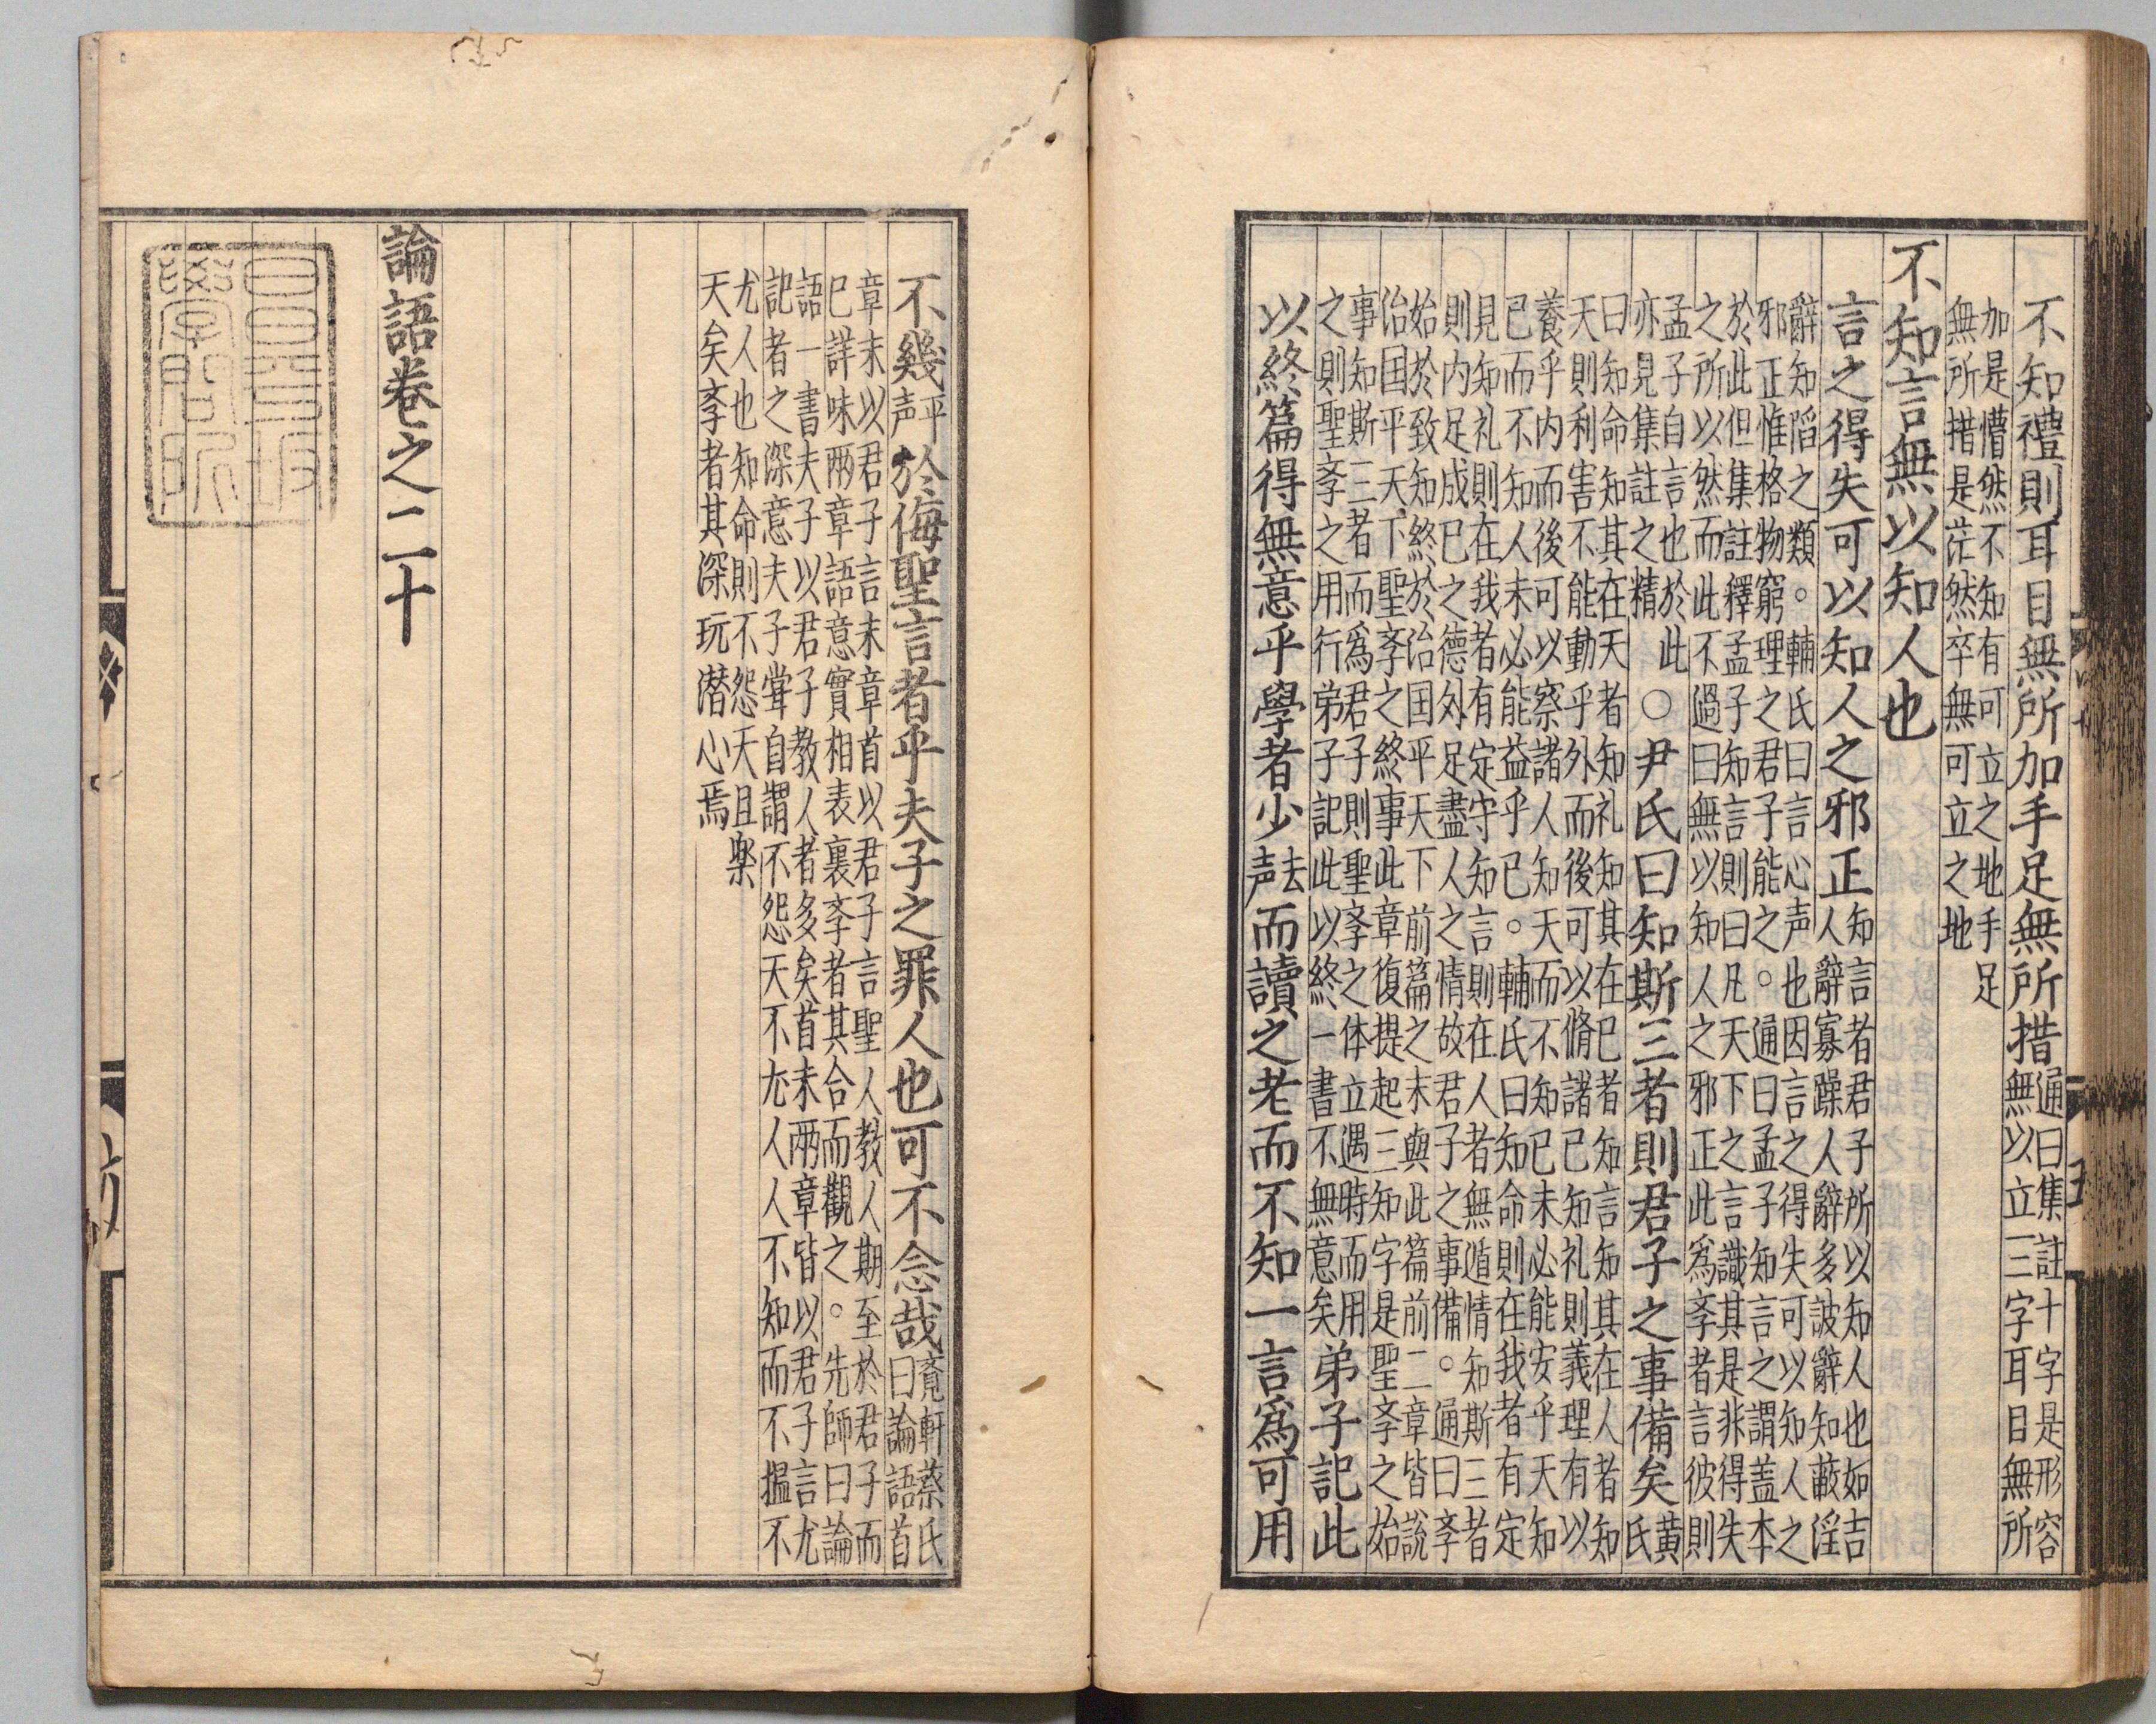 不知禮則耳目無所加手足無所措
通曰集註十字是形容
無以立三字耳目無所
加是懵然不知有可立之地手足
無所措是茫然卒無可立之地
不知言無以知人也
言之得失可以知人之邪正
知言者君子所以知人也如吉
人辭寡躁人辭多詖辭知蔽淫
辭知陷之類。輔氏曰言心声也因言之得失可以知人之
邪正惟格物窮理之君子能之。通曰孟子知言之謂盖本
於此但集註釋孟子知言則曰凡天下之言識其是非得失
之所以然而此不過曰無以知人之邪正此爲斈者言彼則
孟子自言也於此
亦見集註之精
○尹氏曰知斯三者則君子之事備矣
黄
氏
曰知命知其在天者知礼知其在已者知言知其在人者知
天則利害不能動乎外而後可以脩諸已知礼則義理有以
養乎内而後可以察諸人知天而不知已未必能安乎天知
已而不知人未必能益乎已。輔氏曰知命則在我者有定
見知礼則在我者有定守知言則在人者無遁情知斯三者
則内足成已之德外足盡人之情故君子之事備。通曰斈
始於致知終於治国平天下前篇之末與此篇前二章皆說
治国平天下聖斈之終事此章復提起三知字是聖斈之始
事知斯三者而爲君子則聖斈之体立遇時而用
之則聖斈之用行弟子記此以終一書不無意矣
弟子記此
以終篇得無意乎學者少
去
声
而讀之老而不知一言爲可用
不幾
平
声
於侮聖言者乎夫子之罪人也可不念哉
覔軒蔡氏
曰論語首
章末以君子言末章首以君子言聖人教人期至於君子而
已詳味兩章語意實相表裏斈者其合而觀之。先師曰論
語一書夫子以君子教人者多矣首末兩章皆以君子言尤
記者之深意夫子甞自謂不怨天不尤人人不知而不慍不
尤人也知命則不怨天且楽
天矣斈者其深玩潜心焉
論語卷之二十
昌平坂
學問所